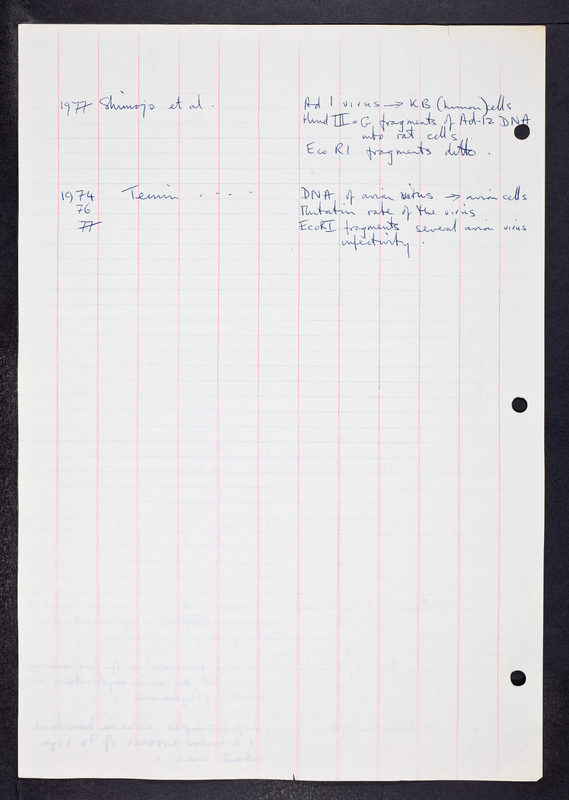 1977 Shimojo et al. Ad 1 virus → KB (human) cells
Hind III = G fragments of Ad-12 DNA
into rat cells
Eco R1 fragments ditto.
1974 Temin . - - . DNA of avian virus → avian cells
76 Mutation rate of the virus
77 EcoRI fragments several avian virus
infectivity.